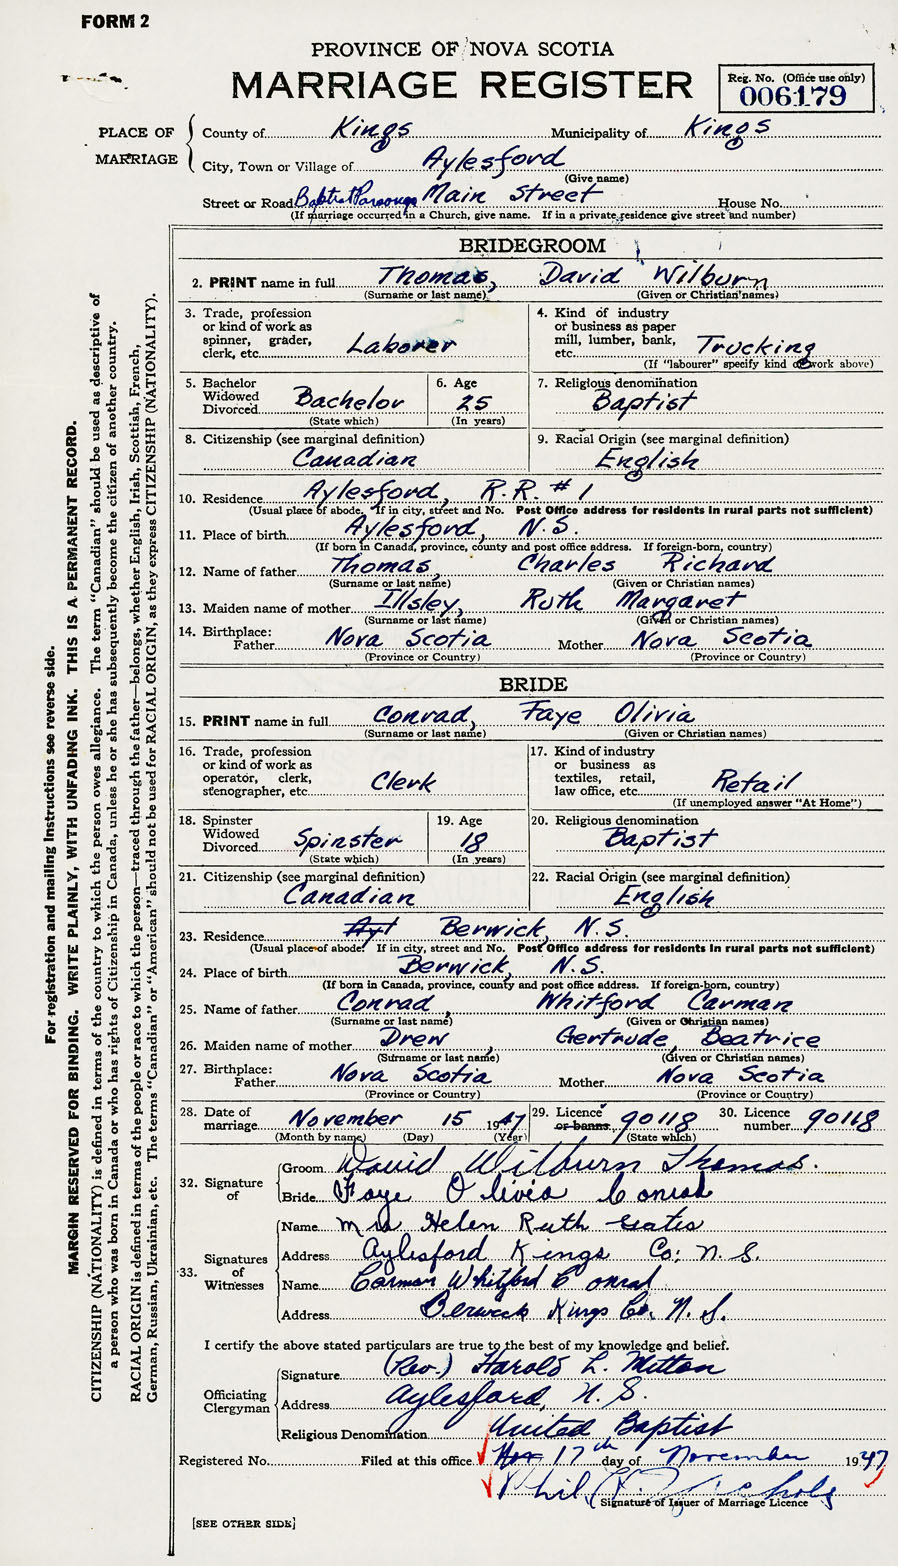 FORM 2
PROVINCE OF NOVA SCOTIA
MARRIAGE REGISTER
Reg. No. (Office use only)
006179
PLACE OF MARRIAGE
County of Kings Municipality of Kings
City, Town or Village of Aylesford
(Give name)
Street or Road Baptist Parsonage Main Street House No.
(If marriage occurred in a Church, give name. If in a private residence give street and number)
BRIDEGROOM
2. PRINT name in full Thomas, David Wilburn
(Surname or last name) (Given or Christian names)
3. Trade, profession
or kind of work as
spinner, grader,
clerk, etc. Laborer
4. Kind of industry
or business as paper
mill, lumber, bank,
etc. Trucking
(If "labourer" specify kind of work above)
5. Bachelor
Widowed
Divorced Bachelor
(State which)
6. Age
25
(In years)
7. Religious denomination
Baptist
8. Citizenship (see marginal definition)
Canadian
9. Racial Origin (see marginal definition)
English
10. Residence Aylesford, R.R. #1
(Usual place of abode. If in city, street and No. Post Office address for residents in rural parts not sufficient)
11. Place of birth Aylesford, N.S.
(If born in Canada, province, county and post office address. If foreign-born, country)
12. Name of father Thomas, Charles Richard
(Surname or last name) (Given or Christian names)
13. Maiden name of mother Illsley, Ruth Margaret
(Surname or last name) (Given or Christian names)
14. Birthplace:
Father Nova Scotia Mother Nova Scotia
(Province or Country) (Province or Country)
BRIDE
15. PRINT name in full Conrad, Faye Olivia
(Surname or last name) (Given or Christian names)
16. Trade, profession
or kind of work as
operator, clerk,
stenographer, etc. Clerk
17. Kind of industry
or business as
textiles, retail,
law office, etc. Retail
(If unemployed answer "At Home")
18. Spinster
Widowed
Divorced Spinster
(State which)
19. Age
18
(In years)
20. Religious denomination
Baptist
21. Citizenship (see marginal definition)
Canadian
22. Racial Origin (see marginal definition)
English
23. Residence Ayl Berwick, N.S.
(Usual place of abode. If in city, street and No. Post Office address for residents in rural parts not sufficient)
24. Place of birth Berwick, N.S.
(If born in Canada, province, county and post office address. If foreign-born, country)
25. Name of father Conrad, Whitford Carman
(Surname or last name) (Given or Christian names)
26. Maiden name of mother Drew, Gertrude Beatrice
(Surname or last name) (Given or Christian names)
27. Birthplace:
Father Nova Scotia Mother Nova Scotia
(Province or Country) (Province or Country)
28. Date of
marriage November 15 1947
(Month by name) (Day) (Year)
29. Licence
or banns 90118
(State which)
30. Licence
number 90118
32. Signature of
Groom David Wilburn Thomas.
Bride Faye Olivia Conrad
33. Signatures of Witnesses
Name Mrs Helen Ruth Gates
Address Aylesford Kings Co: N.S.
Name Carman Whitford Conrad
Address Berwick Kings Co. N.S.
I certify the above stated particulars are true to the best of my knowledge and belief.
Officiating Clergyman
Signature (Rev.) Harold L. Mitton
Address Aylesford, N.S.
Religious Denomination United Baptist
Registered No. Filed at this office Nov 17th day of November 1947
Phil Nichols
Signature of Issuer of Marriage Licence
[SEE OTHER SIDE]
For registration and mailing instructions see reverse side.
MARGIN RESERVED FOR BINDING. WRITE PLAINLY, WITH UNFADING INK. THIS IS A PERMANENT RECORD.
CITIZENSHIP (NATIONALITY) is defined in terms of the country to which the person owes allegiance. The term "Canadian" should be used as descriptive of
a person who was born in Canada or who has rights of Citizenship in Canada, unless he or she has subsequently become the citizen of another country.
RACIAL ORIGIN is defined in terms of the people or race to which the person—traced through the father—belongs, whether English, Irish, Scottish, French,
German, Russian, Ukrainian, etc. The terms "Canadian" or "American" should not be used for RACIAL ORIGIN, as they express CITIZENSHIP (NATIONALITY).